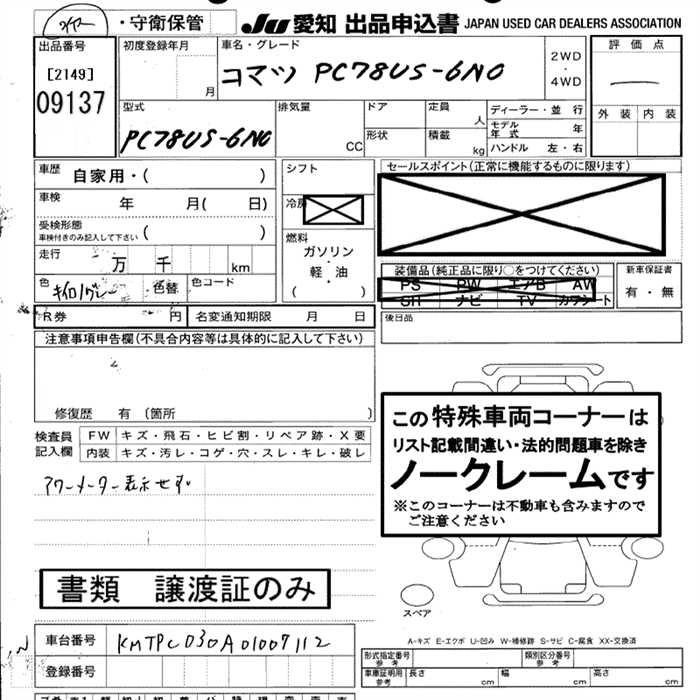 ・守衛保管 JU 愛知 出品申込書 JAPAN USED CAR DEALERS ASSOCIATION
出品番号 初度登録年月 車名・グレード 評価点
[2149] 月 コマツ PC78US-6N0 2WD・4WD
09137
外装 内装
型式 排気量 ドア 定員 人 ディーラー・並行
モデル年式 年
PC78US-6N0 CC 形状 積載 kg ハンドル 左・右
車歴 自家用・( ) シフト セールスポイント(正常に機能するものに限ります)
車検 年 月( 日) 冷房
受検形態 ( )
車検付きのみ記入して下さい
燃料
走行 万 千 km ガソリン・軽・油
( )
装備品(純正品に限り○をつけてください) 新車保証書
PS PW エアB AW 有・無
SR ナビ TV カワシート
色 キイロ/グレー 色替 色コード
R券 円 名変通知期限 月 日 後日品
注意事項申告欄(不具合内容等は具体的に記入して下さい)
修復歴 有 (箇所 )
この特殊車両コーナーは
リスト記載間違い・法的問題車を除き
ノークレームです
※このコーナーは不動車も含みますので
ご注意ください
検査員記入欄 FW キズ・飛石・ヒビ割・リペア跡・X要
内装 キズ・汚レ・コゲ・穴・スレ・キレ・破レ
アワーメーター表示せず
書類 譲渡証のみ
スペア
A-キズ E-エクボ U-凹み W-補修跡 S-サビ C-腐食 XX-交換済
車台番号 KMTPC030A01007112
登録番号
形式指定番号 参考 類別区分番号 参考
車庫証明用 参考 長さ cm 幅 cm 高さ cm